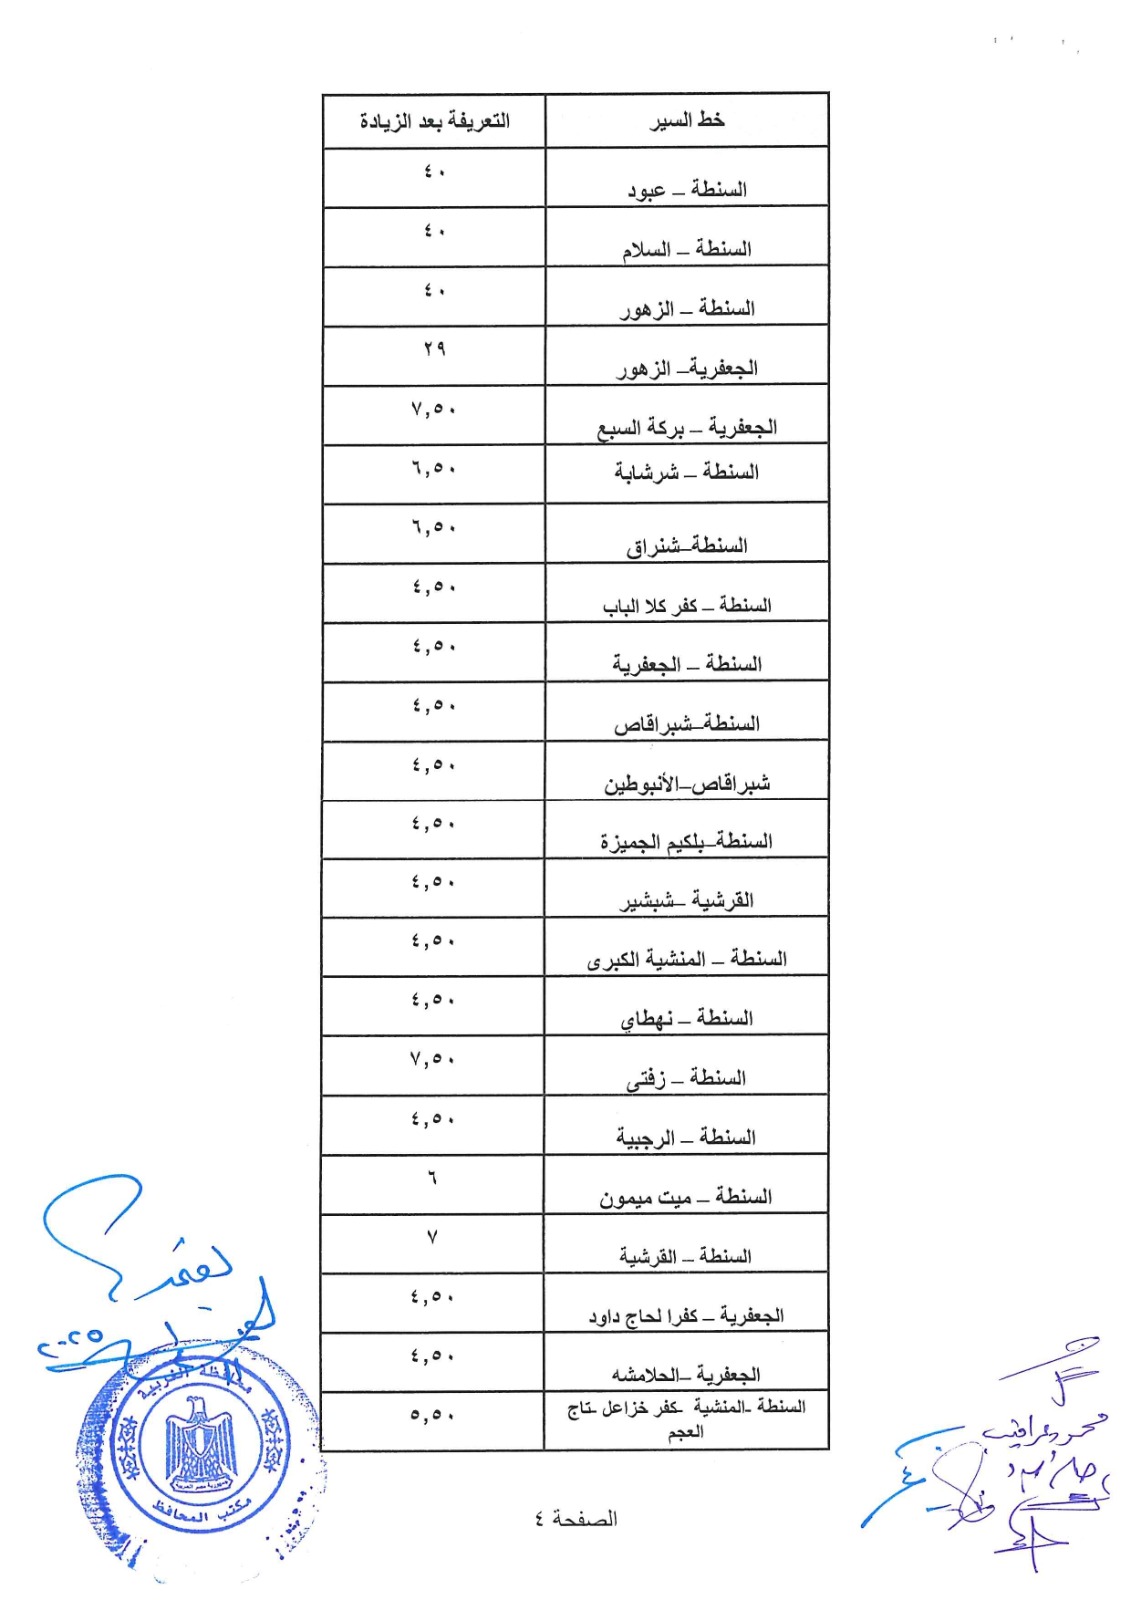 خط السير	التعريفة بعد الزيادة
السنطة – عبود	٤٠
السنطة – السلام	٤٠
السنطة – الزهور	٤٠
الجعفرية– الزهور	٢٩
الجعفرية – بركة السبع	٧,٥٠
السنطة – شرشابة	٦,٥٠
السنطة–شنراق	٦,٥٠
السنطة – كفر كلا الباب	٤,٥٠
السنطة – الجعفرية	٤,٥٠
السنطة–شبراقاص	٤,٥٠
شبراقاص–الأنبوطين	٤,٥٠
السنطة–بلكيم الجميزة	٤,٥٠
القرشية –شبشير	٤,٥٠
السنطة – المنشية الكبرى	٤,٥٠
السنطة – نهطاي	٤,٥٠
السنطة – زفتى	٧,٥٠
السنطة – الرجبية	٤,٥٠
السنطة – ميت ميمون	٦
السنطة – القرشية	٧
الجعفرية – كفرا لحاج داود	٤,٥٠
الجعفرية –الحلامشه	٤,٥٠
السنطة -المنشية -كفر خزاعل -تاج	٥,٥٠
العجم
يعتمد
محافظة الغربية
جمهورية مصر العربية
مكتب المحافظ
الصفحة ٤